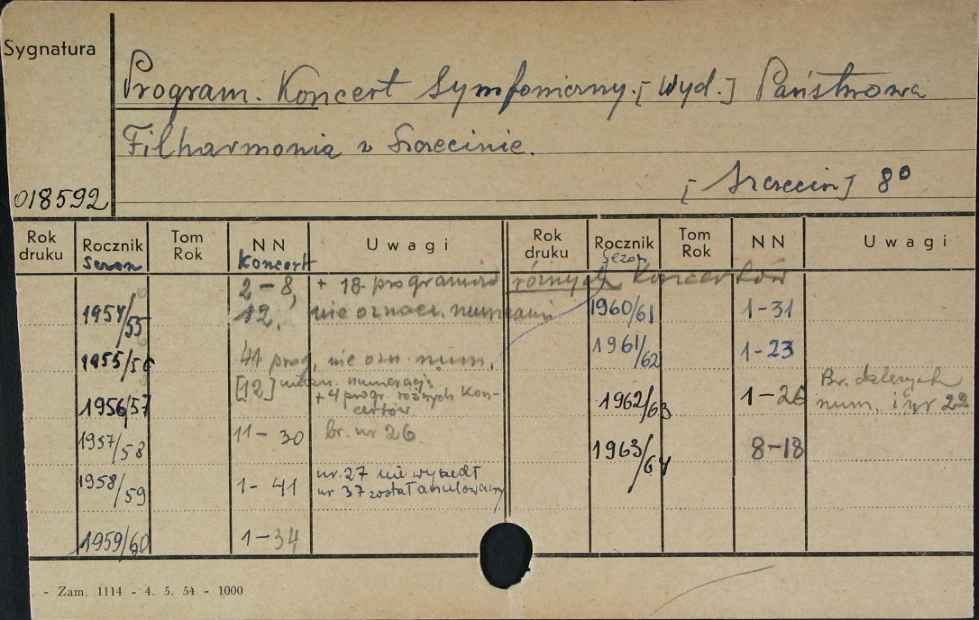 Sygnatura
Program. Koncert Symfoniczny. [Wyd.] Państwowa
Filharmonia w Szczecinie.
[Szczecin] 8°
018592
Rok druku Rocznik Tom Rok NN Uwagi Rok druku Rocznik Tom Rok NN Uwagi
Sezon Koncert Sezon
2-8, + 18 programów różnych koncertów
1954/55 12. nie oznacz. numerami 1960/61 1-31
1955/56 41 prog. nie ozn. num. 1961/62 1-23
1956/57 [12] numeracji + 4 progr. różnych koncertów 1962/63 1-26 Br. dalszych num. i nr 22
1957/58 11-30 br. nr 26 1963/64 8-18
1958/59 1-41 nr. 27 nie wyszedł
nr 37 został anulowany
1959/60 1-34
- Zam. 1114 - 4. 5. 54 - 1000